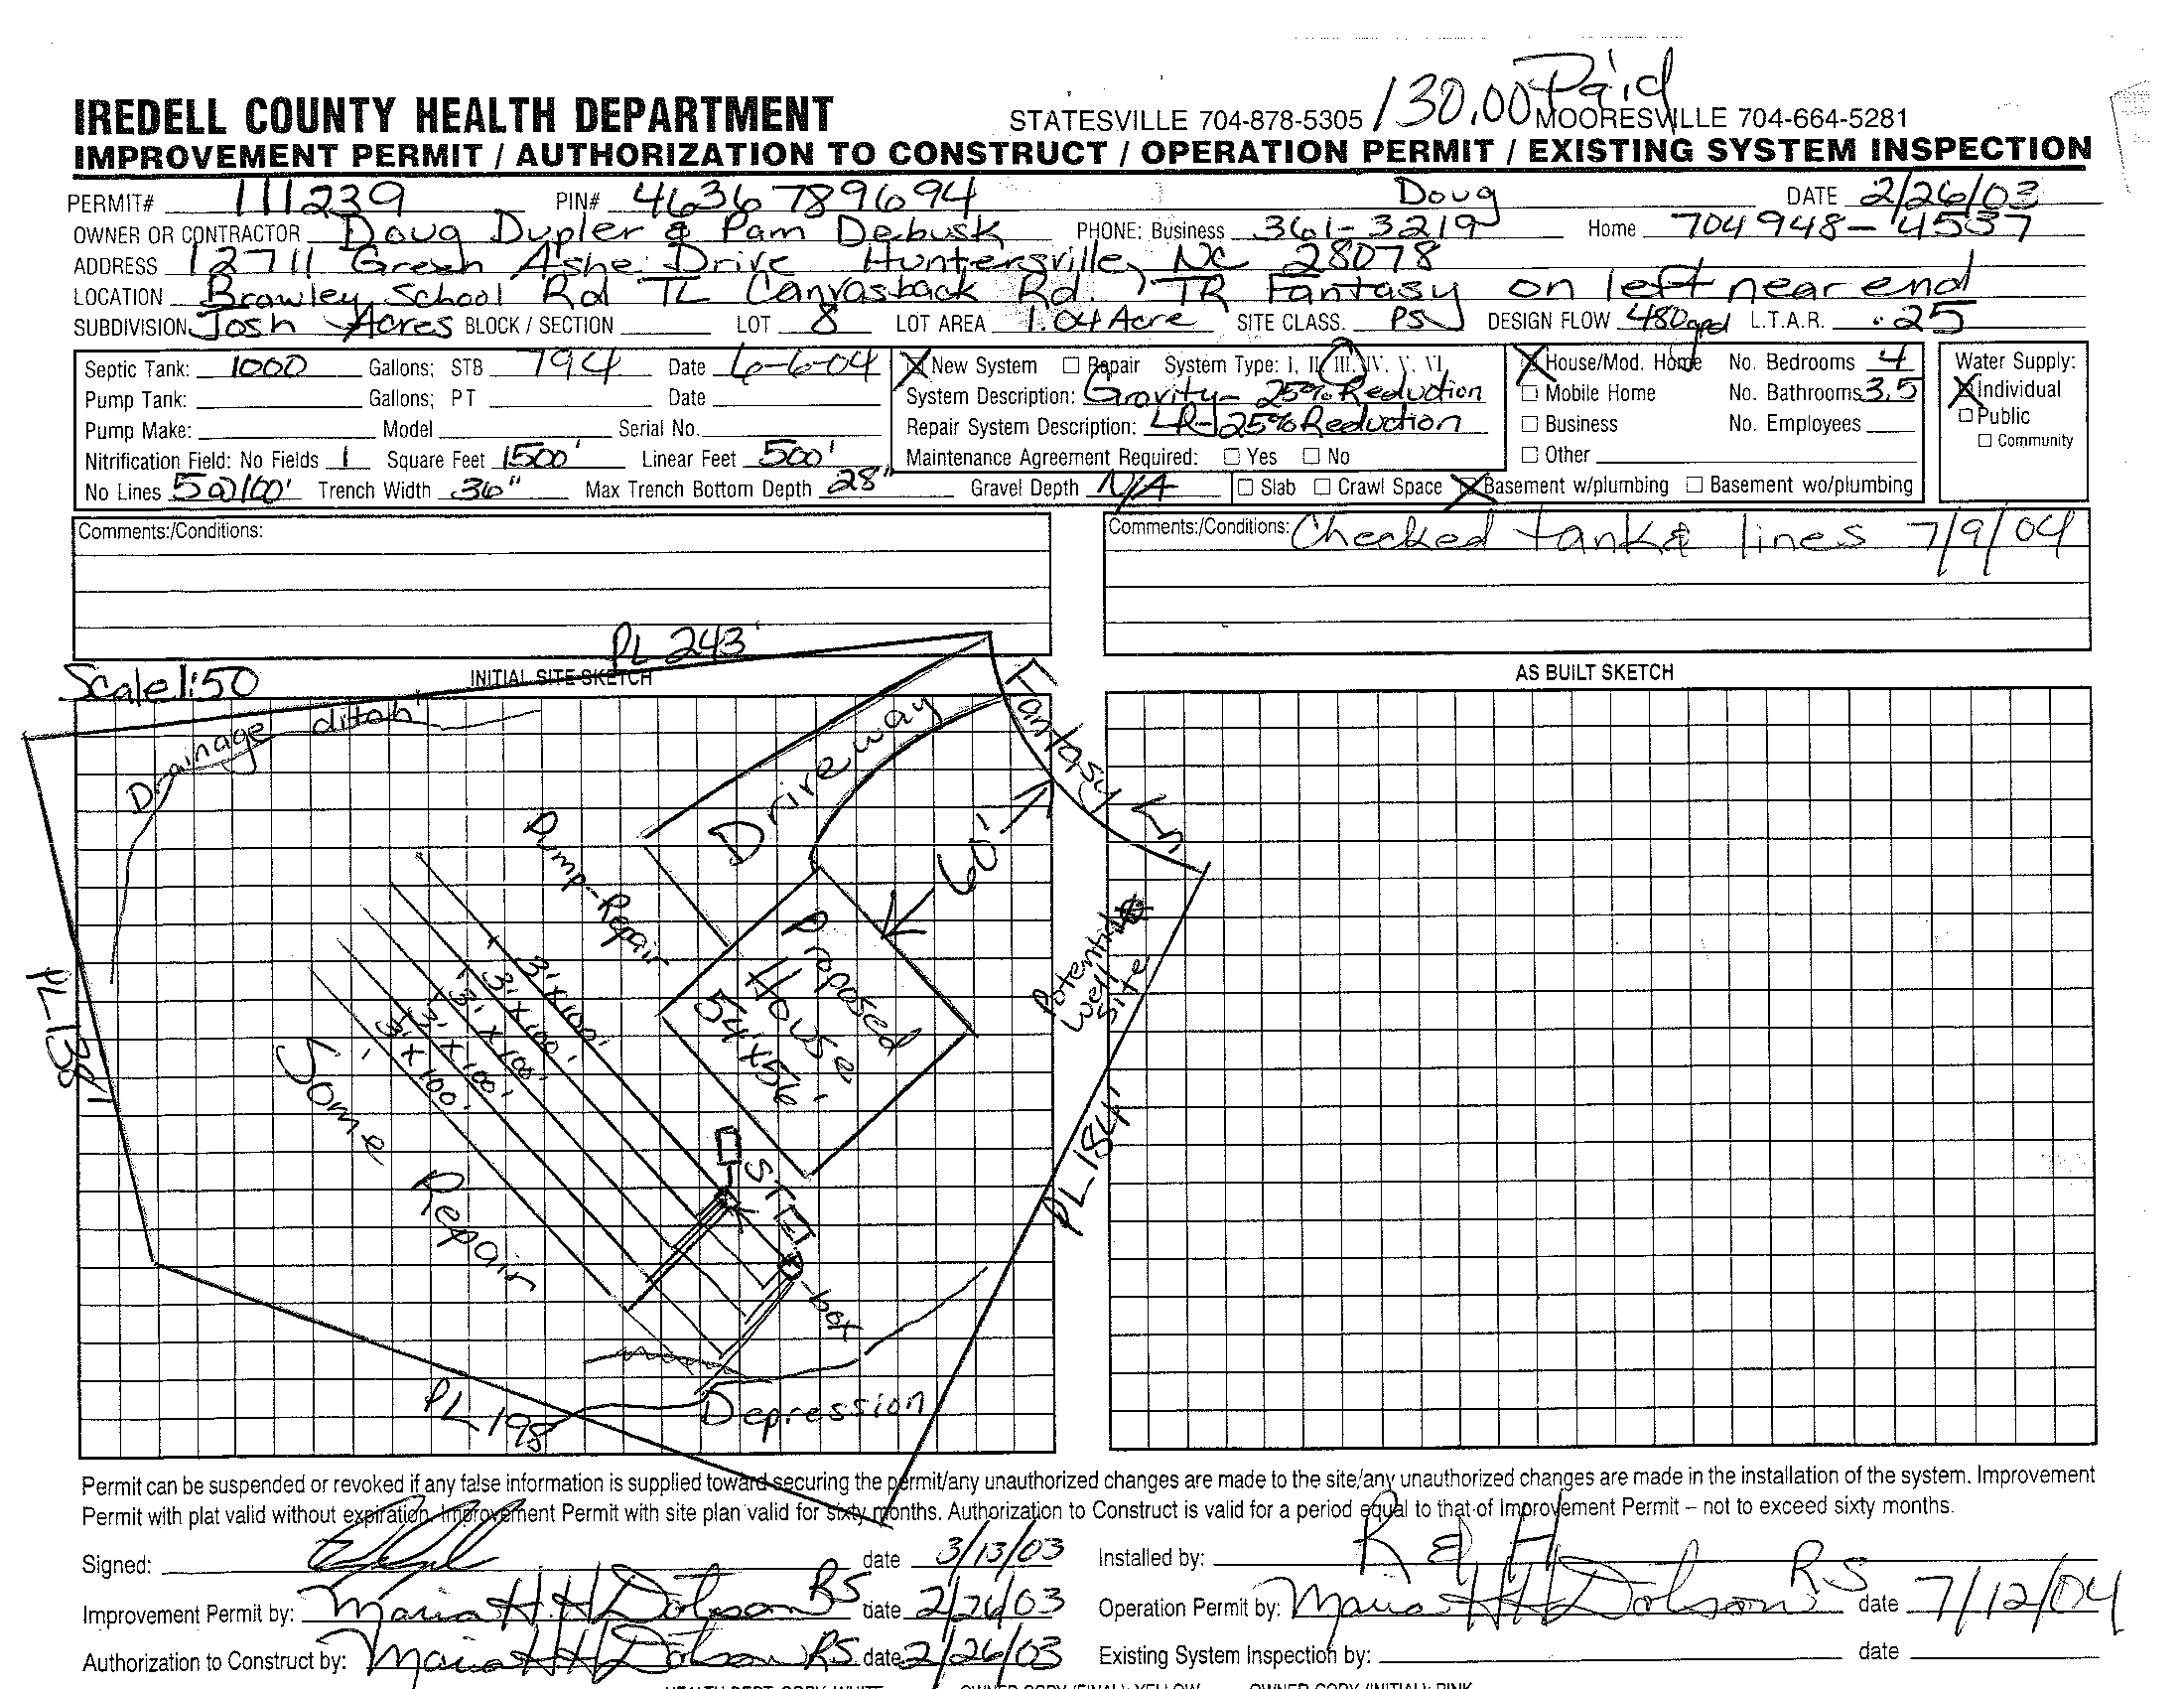 130.00 Paid
IREDELL COUNTY HEALTH DEPARTMENT STATESVILLE 704-878-5305 MOORESVILLE 704-664-5281
IMPROVEMENT PERMIT / AUTHORIZATION TO CONSTRUCT / OPERATION PERMIT / EXISTING SYSTEM INSPECTION
PERMIT# 111239 PIN# 4636789694 Doug DATE 2/26/03
OWNER OR CONTRACTOR Doug Dupler & Pam Debusk PHONE: Business 361-3219 Home 704 948-4537
ADDRESS 12711 Green Ashe Drive Huntersville, NC 28078
LOCATION Brawley School Rd TL Canvasback Rd. TR Fantasy on left near end
SUBDIVISION Josh Acres BLOCK / SECTION LOT 8 LOT AREA 1.04 Acre SITE CLASS. PS DESIGN FLOW 480gpd L.T.A.R. .25
Septic Tank: 1000 Gallons; STB 794 Date 6-6-04 New System Repair System Type: I, II, III, IV, V, VI House/Mod. Home No. Bedrooms 4 Water Supply:
Pump Tank: Gallons; PT Date System Description: Gravity- 25% Reduction Mobile Home No. Bathrooms 3.5 Individual
Pump Make: Model Serial No. Repair System Description: LR-25% Reduction Business No. Employees Public
Nitrification Field: No Fields 1 Square Feet 1500' Linear Feet 500' Maintenance Agreement Required: Yes No Other Community
No Lines 5@100' Trench Width 36" Max Trench Bottom Depth 28" Gravel Depth N/A Slab Crawl Space Basement w/plumbing Basement wo/plumbing
Comments:/Conditions:
Comments:/Conditions: Checked tank & lines 7/9/04
PL 243'
Scale 1:50 INITIAL SITE SKETCH AS BUILT SKETCH
Drainage ditch
Driveway
Fantasy Ln.
60'
Pump-Repair
Proposed
House
54'x56'
Potential
well
Site
PL-138'
3'x100'
3'x100'
3'x100'
3'x100'
3'x100'
Some Repair
ST
box
PL 184'
PL 198
Depression
Permit can be suspended or revoked if any false information is supplied toward securing the permit/any unauthorized changes are made to the site/any unauthorized changes are made in the installation of the system. Improvement
Permit with plat valid without expiration. Improvement Permit with site plan valid for sixty months. Authorization to Construct is valid for a period equal to that of Improvement Permit – not to exceed sixty months.
Signed: date 3/13/03 Installed by: R & H
Improvement Permit by: Maria H. H. Dotson RS date 2/26/03 Operation Permit by: Maria H H Dotson RS date 7/12/04
Authorization to Construct by: Maria H H Dotson RS date 2/26/03 Existing System Inspection by: date